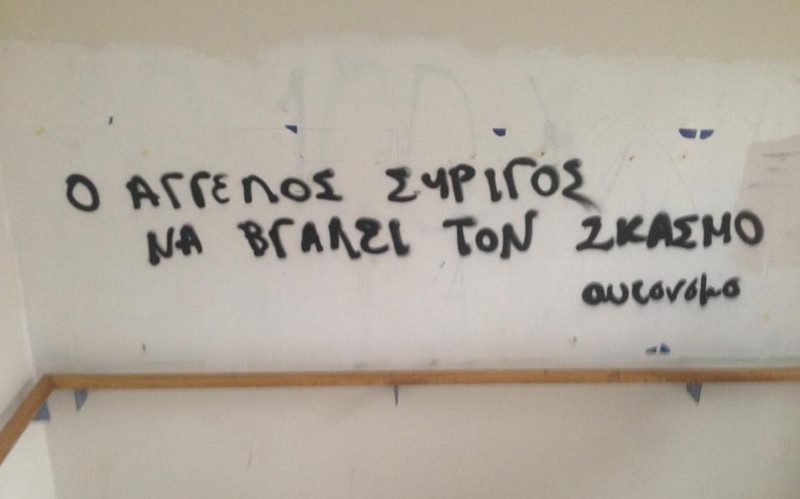 Ο ΑΓΓΕΛΟΣ ΣΥΡΙΓΟΣ
ΝΑ ΒΓΑΛΕΙ ΤΟΝ ΣΚΑΣΜΟ
αυτονομο